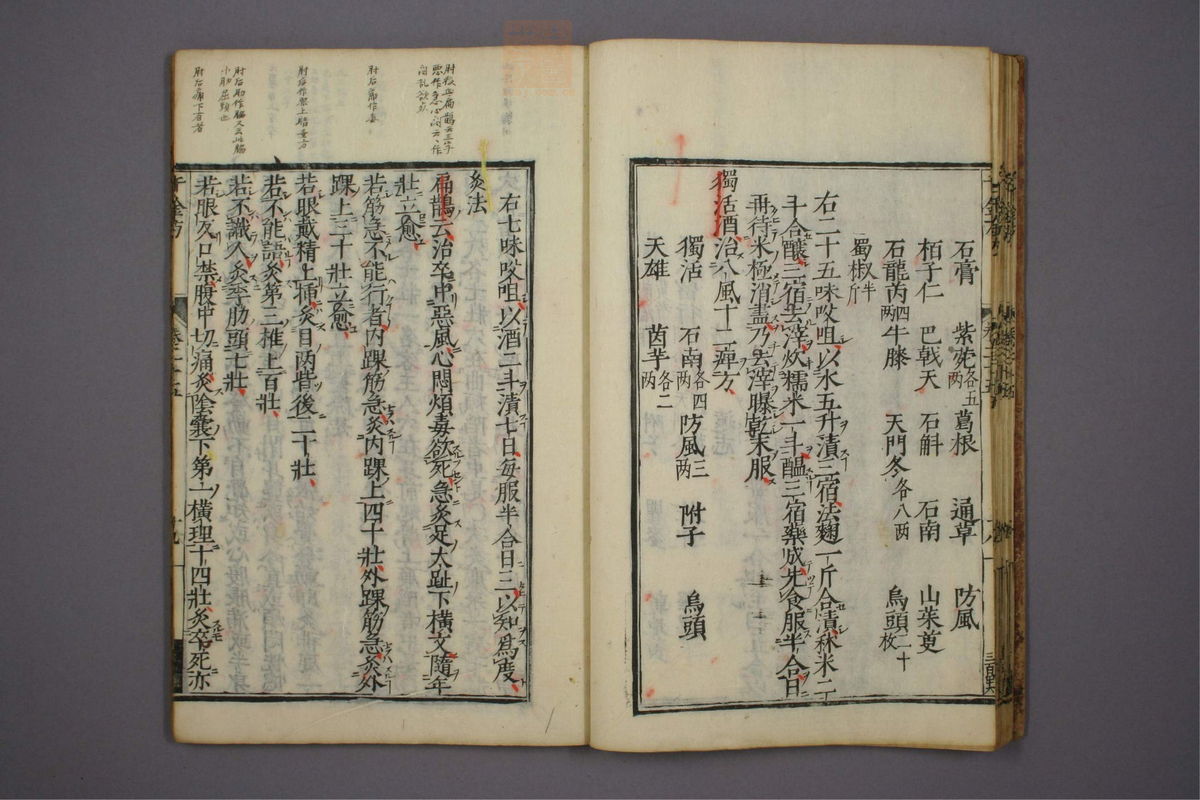 石膏　紫菀各五两　葛根　通草　防風
栢子仁　巴戟天　石斛　石南　山茱萸
石龍芮四两　牛膝　天門冬各八两　烏頭二十枚
蜀椒半斤
右二十五味㕮咀以水五升漬三宿法麹一斤合漬秫米二
斗合釀三宿去滓炊糯米一斗醖三宿藥成先食服半合日
再待米極消盡乃去滓曝乾末服
獨活酒治八風十二痹方
獨活　石南各四两　防風三两　附子　烏頭
天雄　茵芋各二两
右七味㕮咀以酒二斗漬七日每服半合日三以知爲度
灸法
扁鵲云治卒中惡風心悶煩毒欲死急灸足太趾下橫文隨年
壯立愈
若筋急不能行者內踝筋急灸內踝上四十壯外踝筋急灸外
踝上三十壯立愈
若眼戴精上插灸目两眥後二十壯
若不能語灸第三椎上百壯
若不識人灸季肋頭七壯
若眼反口禁腹中切痛灸陰囊下第一橫理十四壯灸卒死亦
肘后作
肘后
小肋屈頭也
肘后痛下有者